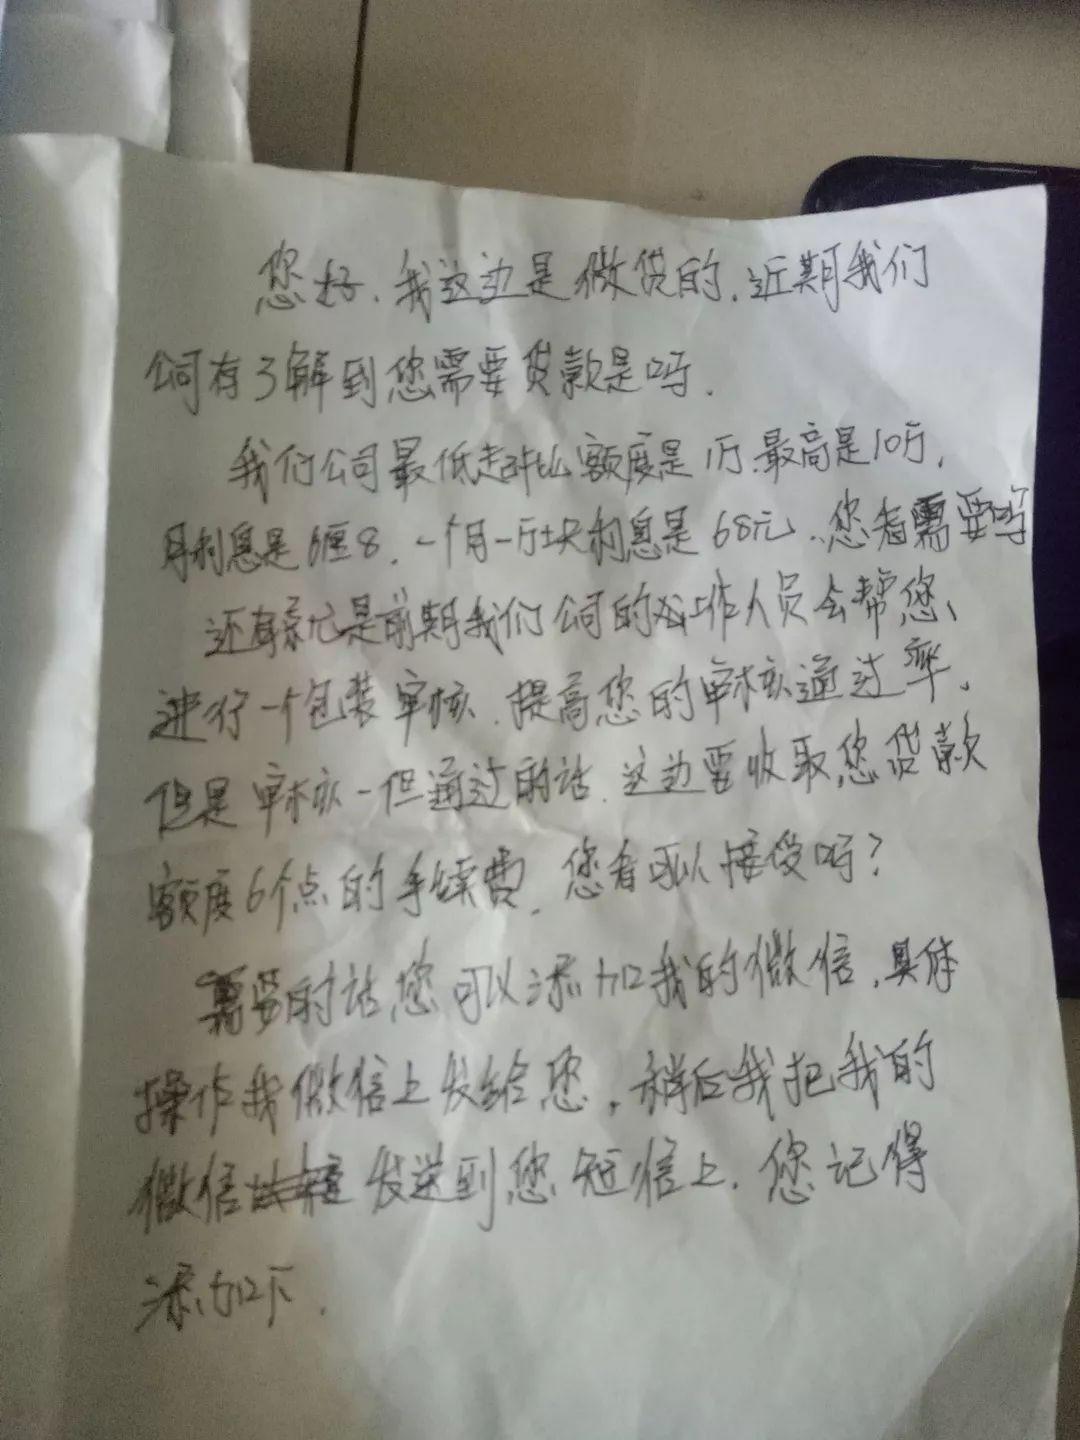 您好，我这边是微贷的，近期我们
公司有了解到您需要贷款是吗，
我们公司最低起批额度是1万，最高是10万，
月利息是6厘8，一个月一万块利息是68元，您看需要吗
还有就是前期我们公司的工作人员会帮您
进行一个包装审核，提高您的审核通过率，
但是审核一但通过的话，这边要收取您贷款
额度6个点的手续费，您看可以接受吗？
需要的话您可以添加我的微信，具体
操作我微信上发给您，稍后我把我的
微信发送到您短信上，您记得
添加下，